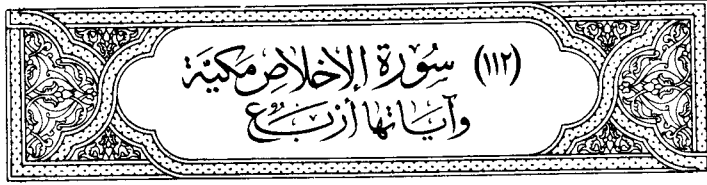 (١١٢) سُورَة الإخلاصِ مَكيَّة
وَآيَاتها أرْبَع